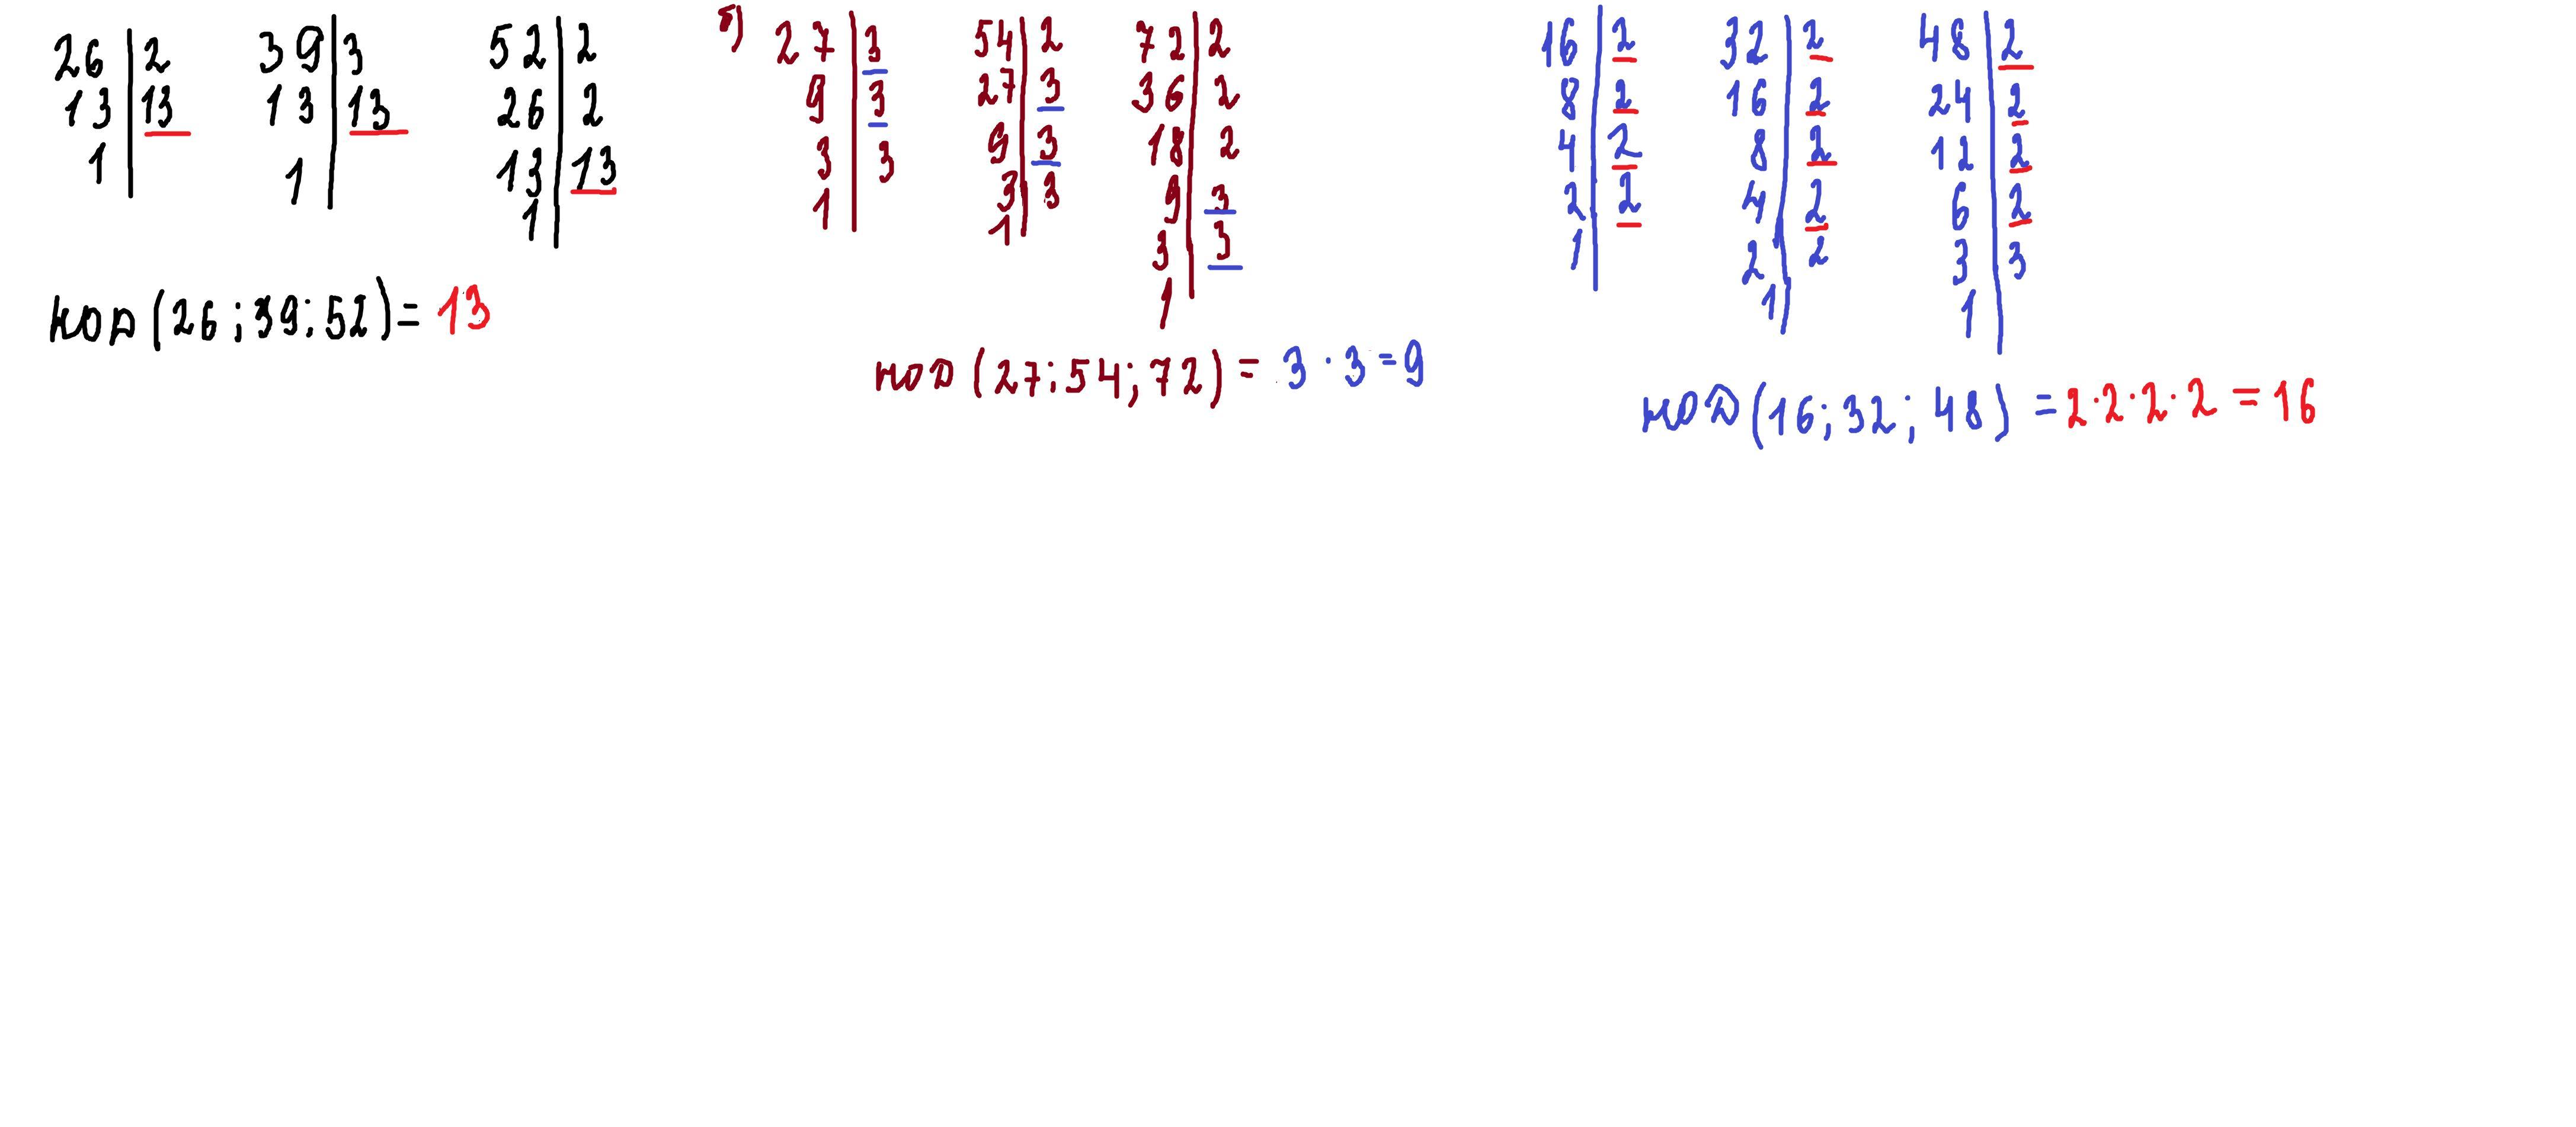 26 | 2
13 | 13
1 |
39 | 3
13 | 13
1 |
52 | 2
26 | 2
13 | 13
1 |
НОД (26 ; 39 ; 52) = 13
б)
27 | 3
9 | 3
3 | 3
1 |
54 | 2
27 | 3
9 | 3
3 | 3
1 |
72 | 2
36 | 2
18 | 2
9 | 3
3 | 3
1 |
НОД (27 ; 54 ; 72) = 3 · 3 = 9
16 | 2
8 | 2
4 | 2
2 | 2
1 |
32 | 2
16 | 2
8 | 2
4 | 2
2 | 2
1 |
48 | 2
24 | 2
12 | 2
6 | 2
3 | 3
1 |
НОД (16 ; 32 ; 48) = 2 · 2 · 2 · 2 = 16